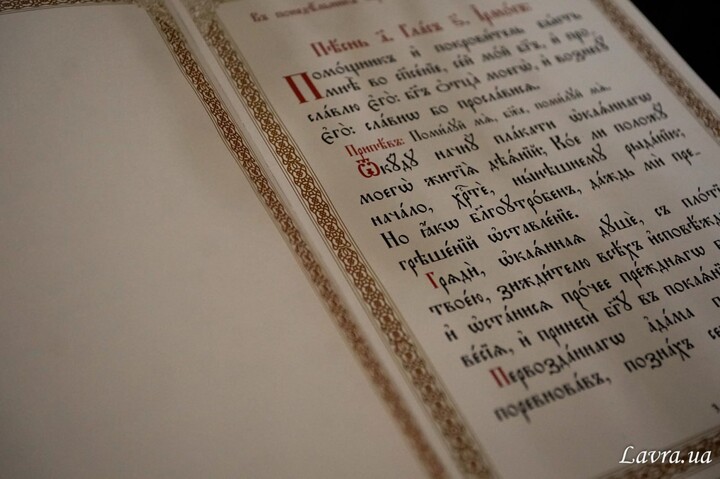 Въ понедѣльникъ
Пѣснь а҃. Гласъ ѕ҃. Ірмосъ:
Помо́щникъ и҆ покрови́тель бы́сть
мнѣ̀ во сп҃се́нїе, се́й мо́й бг҃ъ, и҆ про-
сла́влю є҆го̀: бг҃ъ ѻ҆тца̀ моегѡ̀, и҆ вознесꙋ̀
є҆го̀: сла́внѡ бо просла́висѧ.
Припѣ́въ: Поми́лꙋй мѧ̀, бж҃е, поми́лꙋй мѧ̀.
Ѿкꙋ́дꙋ начнꙋ̀ пла́кати ѡ҆каѧ́ннагѡ
моегѡ̀ житїѧ̀ дѣѧ́нїй; Ко́е ли положꙋ̀
нача́ло, хрⷭ҇тѐ, ны́нѣшнемꙋ рыда́нїю;
Но ꙗ҆́кѡ бл҃гоꙋтро́бенъ, да́ждь мѝ пре-
грѣше́нїй ѡ҆ставле́нїе.
Грѧдѝ, ѡ҆каѧ́ннаѧ дꙋшѐ, съ пло́тїю
твое́ю, зижди́телю всѣ́хъ и҆сповѣ́ждь
и҆ ѡ҆ста́нисѧ про́чее пре́ждне­гѡ
ве́сїѧ, и҆ принесѝ бг҃ꙋ въ покаѧ́нїи
Первозда́ннаго а҆да́ма
поревнова́въ, позна́хъ се
Lavra.ua